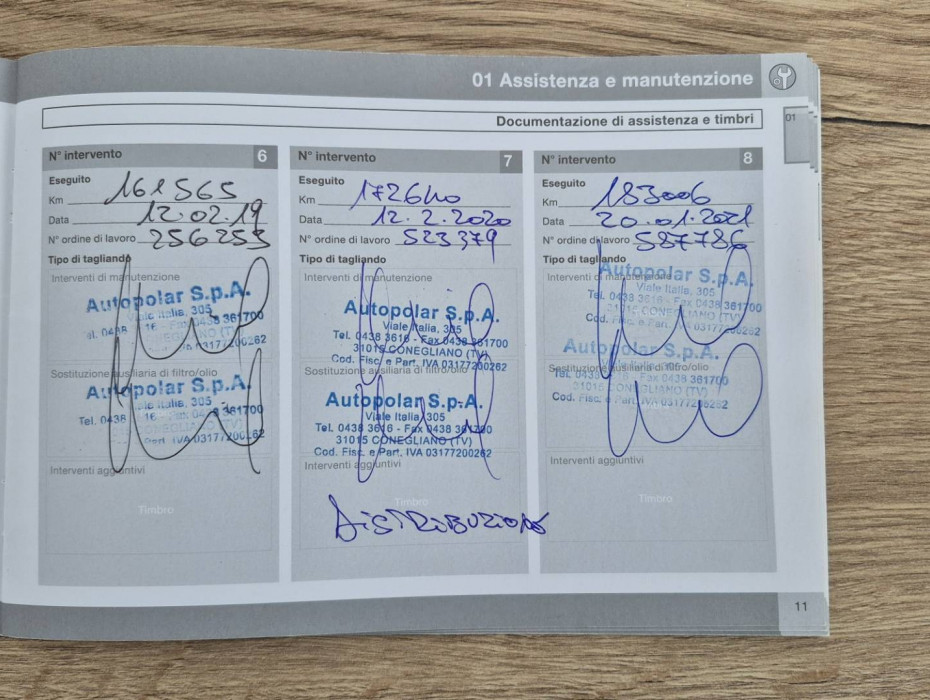 01 Assistenza e manutenzione
Documentazione di assistenza e timbri
01
N° intervento 6
Eseguito
Km 161565
Data 12.02.19
N° ordine di lavoro 256253
Tipo di tagliando
Interventi di manutenzione
Autopolar S.p.A.
Viale Italia, 305
Tel. 0438 16 - Fax 0438 361700
CONEGLIANO (TV)
Part. IVA 03177200262
Sostituzione ausiliaria di filtro/olio
Autopolar S.p.A.
Viale Italia, 305
Tel. 0438 16 - Fax 0438 361700
CONEGLIANO (TV)
Part. IVA 03177200262
Interventi aggiuntivi
Timbro
N° intervento 7
Eseguito
Km 172640
Data 12.2.2020
N° ordine di lavoro 523379
Tipo di tagliando
Interventi di manutenzione
Autopolar S.p.A.
Viale Italia, 305
Tel. 0438 3616 - Fax 0438 361700
31015 CONEGLIANO (TV)
Cod. Fisc. e Part. IVA 03177200262
Sostituzione ausiliaria di filtro/olio
Autopolar S.p.A.
Viale Italia, 305
Tel. 0438 3616 - Fax 0438 361700
31015 CONEGLIANO (TV)
Cod. Fisc. e Part. IVA 03177200262
Interventi aggiuntivi
Timbro
DISTRIBUZIONE
N° intervento 8
Eseguito
Km 183006
Data 20.01.2021
N° ordine di lavoro 587786
Tipo di tagliando
Interventi di manutenzione
Autopolar S.p.A.
Viale Italia, 305
Tel. 0438 3616 - Fax 0438 361700
31015 CONEGLIANO (TV)
Cod. Fisc. e Part. IVA 03177200262
Autopolar S.p.A.
Sostituzione ausiliaria di filtro/olio
Viale Italia, 305
Tel. 0438 3616 - Fax 0438 361700
31015 CONEGLIANO (TV)
Cod. Fisc. e Part. IVA 03177200262
Interventi aggiuntivi
Timbro
11